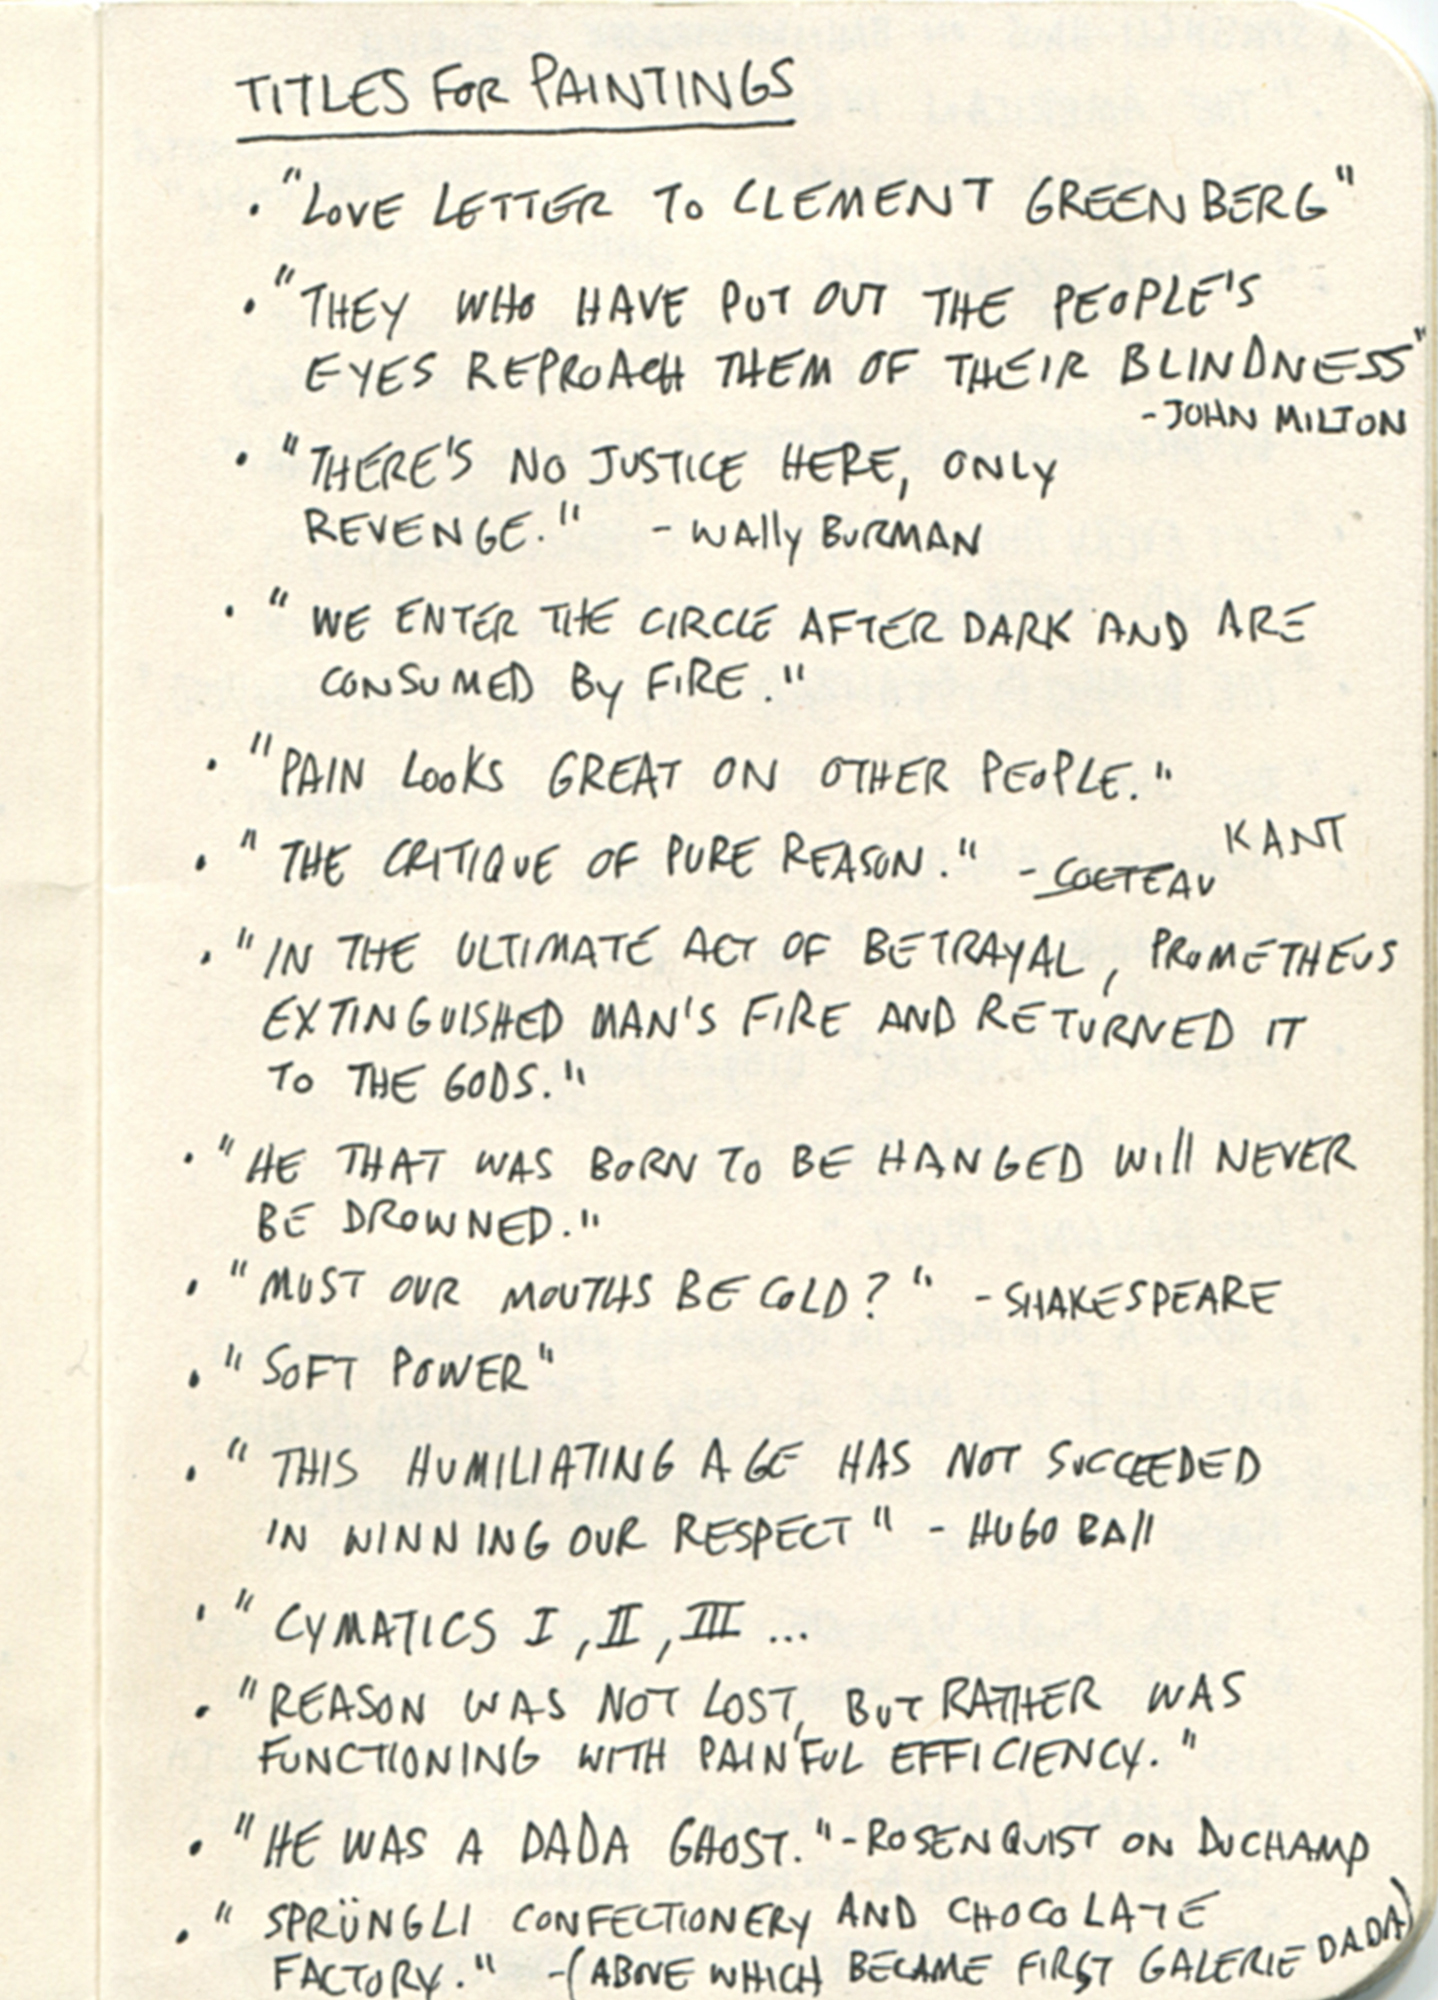 TITLES FOR PAINTINGS
• "LOVE LETTER TO CLEMENT GREENBERG"
• "THEY WHO HAVE PUT OUT THE PEOPLE'S
EYES REPROACH THEM OF THEIR BLINDNESS"
- JOHN MILTON
• "THERE'S NO JUSTICE HERE, ONLY
REVENGE." - WALLY BURMAN
• "WE ENTER THE CIRCLE AFTER DARK AND ARE
CONSUMED BY FIRE."
• "PAIN LOOKS GREAT ON OTHER PEOPLE."
• "THE CRITIQUE OF PURE REASON." - COCTEAU KANT
• "IN THE ULTIMATE ACT OF BETRAYAL, PROMETHEUS
EXTINGUISHED MAN'S FIRE AND RETURNED IT
TO THE GODS."
• "HE THAT WAS BORN TO BE HANGED WILL NEVER
BE DROWNED."
• "MUST OUR MOUTHS BE COLD?" - SHAKESPEARE
• "SOFT POWER"
• "THIS HUMILIATING AGE HAS NOT SUCCEEDED
IN WINNING OUR RESPECT" - HUGO BALL
• "CYMATICS I, II, III ...
• "REASON WAS NOT LOST, BUT RATHER WAS
FUNCTIONING WITH PAINFUL EFFICIENCY."
• "HE WAS A DADA GHOST." - ROSENQUIST ON DUCHAMP
• "SPRÜNGLI CONFECTIONERY AND CHOCOLATE
FACTORY." - (ABOVE WHICH BECAME FIRST GALERIE DADA)